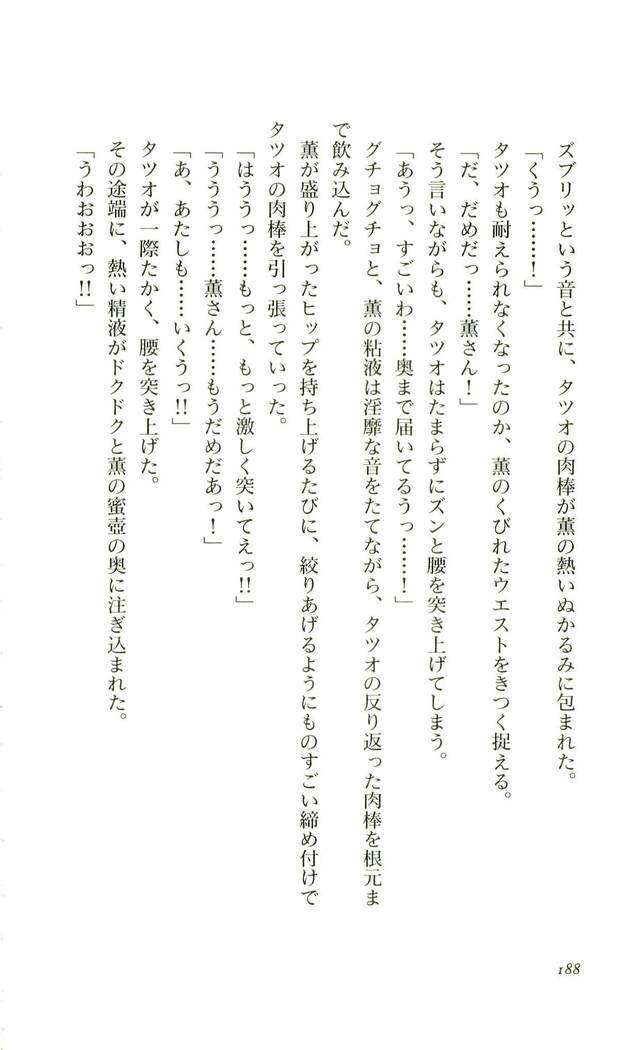 ズブリッという音と共に、タツオの肉棒が薫の熱いぬかるみに包まれた。
「くうっ……！」
タツオも耐えられなくなったのか、薫のくびれたウエストをきつく捉える。
「だ、だめだっ……薫さん！」
そう言いながらも、タツオはたまらずにズンと腰を突き上げてしまう。
「あうっ、すごいわ……奥まで届いてるうっ……！」
グチョグチョと、薫の粘液は淫靡な音をたてながら、タツオの反り返った肉棒を根元ま
で飲み込んだ。
薫が盛り上がったヒップを持ち上げるたびに、絞りあげるようにものすごい締め付けで
タツオの肉棒を引っ張っていった。
「はううっ……もっと、もっと激しく突いてえっ!!」
「うううっ……薫さん……もうだめだあっ！」
「あ、あたしも……いくうっ!!」
タツオが一際たかく、腰を突き上げた。
その途端に、熱い精液がドクドクと薫の蜜壺の奥に注ぎ込まれた。
「うわおおおっ!!」
188